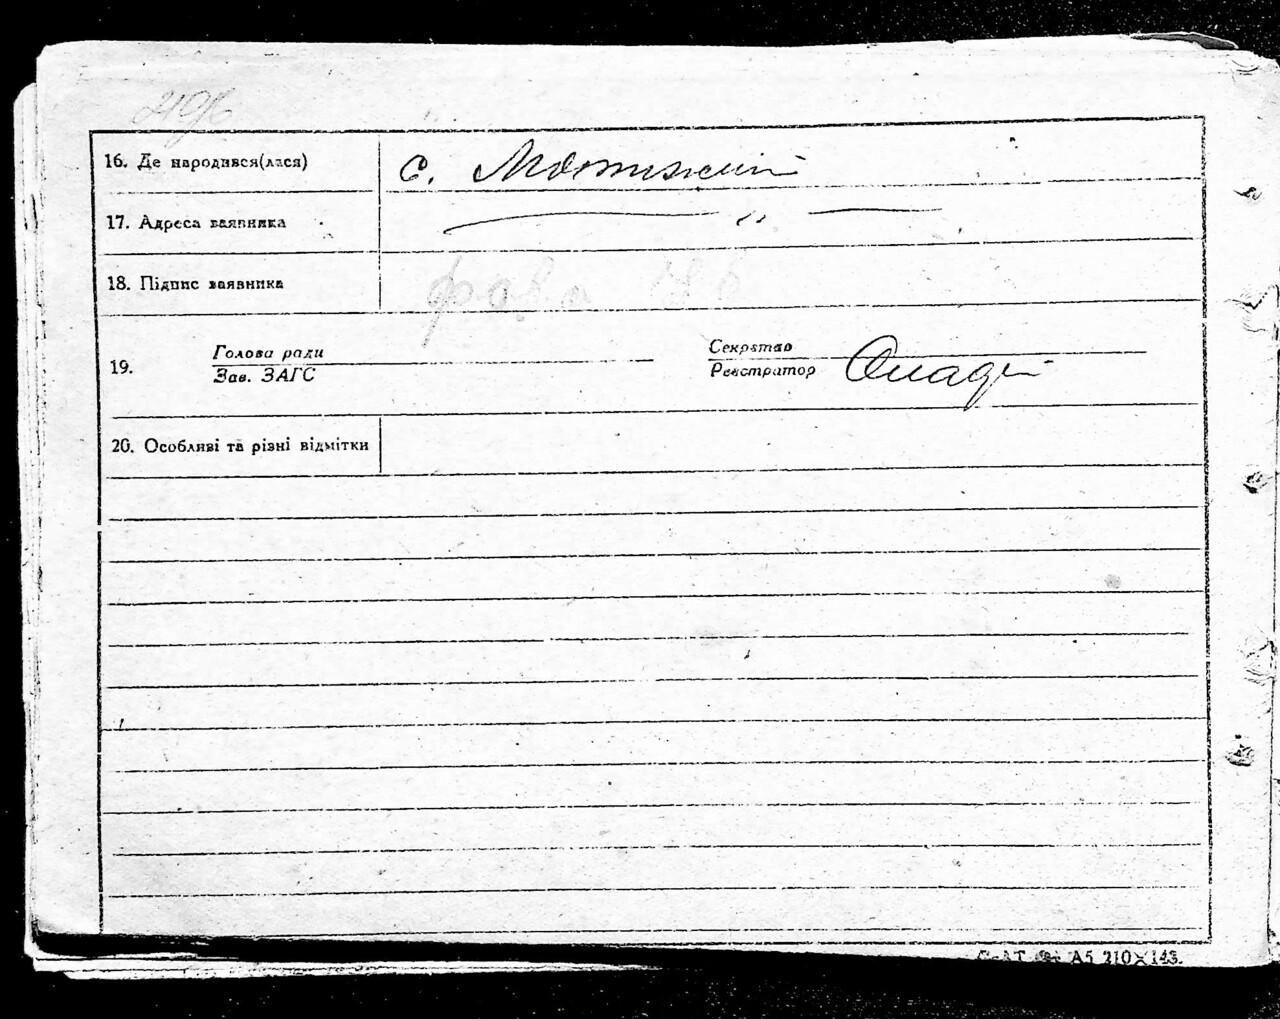 16. Де народився(лася) с. Мотижин
17. Адреса заявника — „ —
18. Підпис заявника
19. Голова ради Секретар
Зав. ЗАГС Реєстратор
20. Особливі та різні відмітки
А5 210×143.